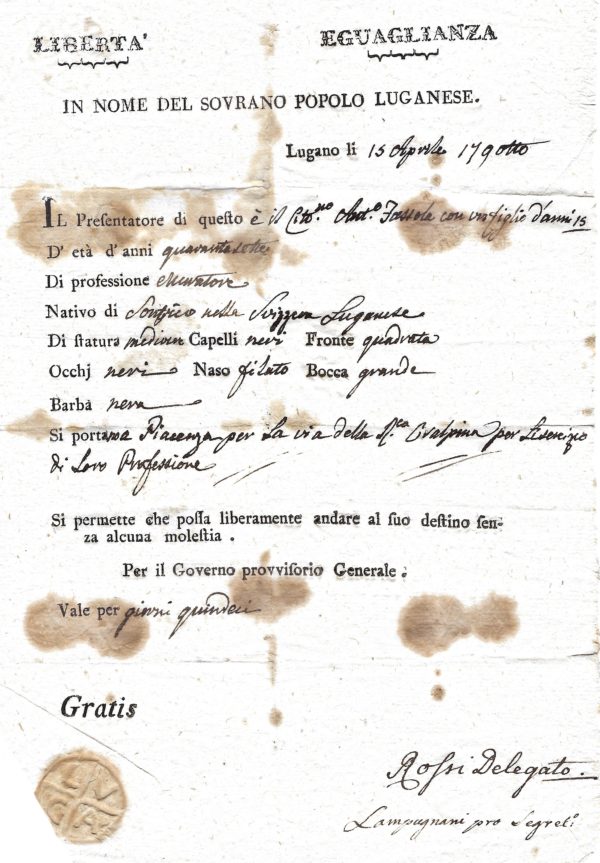 LIBERTA'
EGUAGLIANZA
IN NOME DEL SOVRANO POPOLO LUGANESE.
Lugano li 15 Aprile 179otto
IL Presentatore di questo è il Citt.no Ant.o Fassola con un figlio d'anni 15
D' età d' anni quarantasette
Di professione
Nativo di Sonvico nella Svizzera Luganese
Di statura mediocre Capelli neri Fronte quadrata
Occhj neri Naso filato Bocca grande
Barba nera
Si porta a Piacenza per la via della R.ca Cisalpina per
di Loro Professione
Si permette che possa liberamente andare al suo destino sen-
za alcuna molestia.
Per il Governo provvisorio Generale.
Vale per giorni quindeci
Gratis
Rossi Delegato.
Lampugnani pro Segret.o
LV
GA